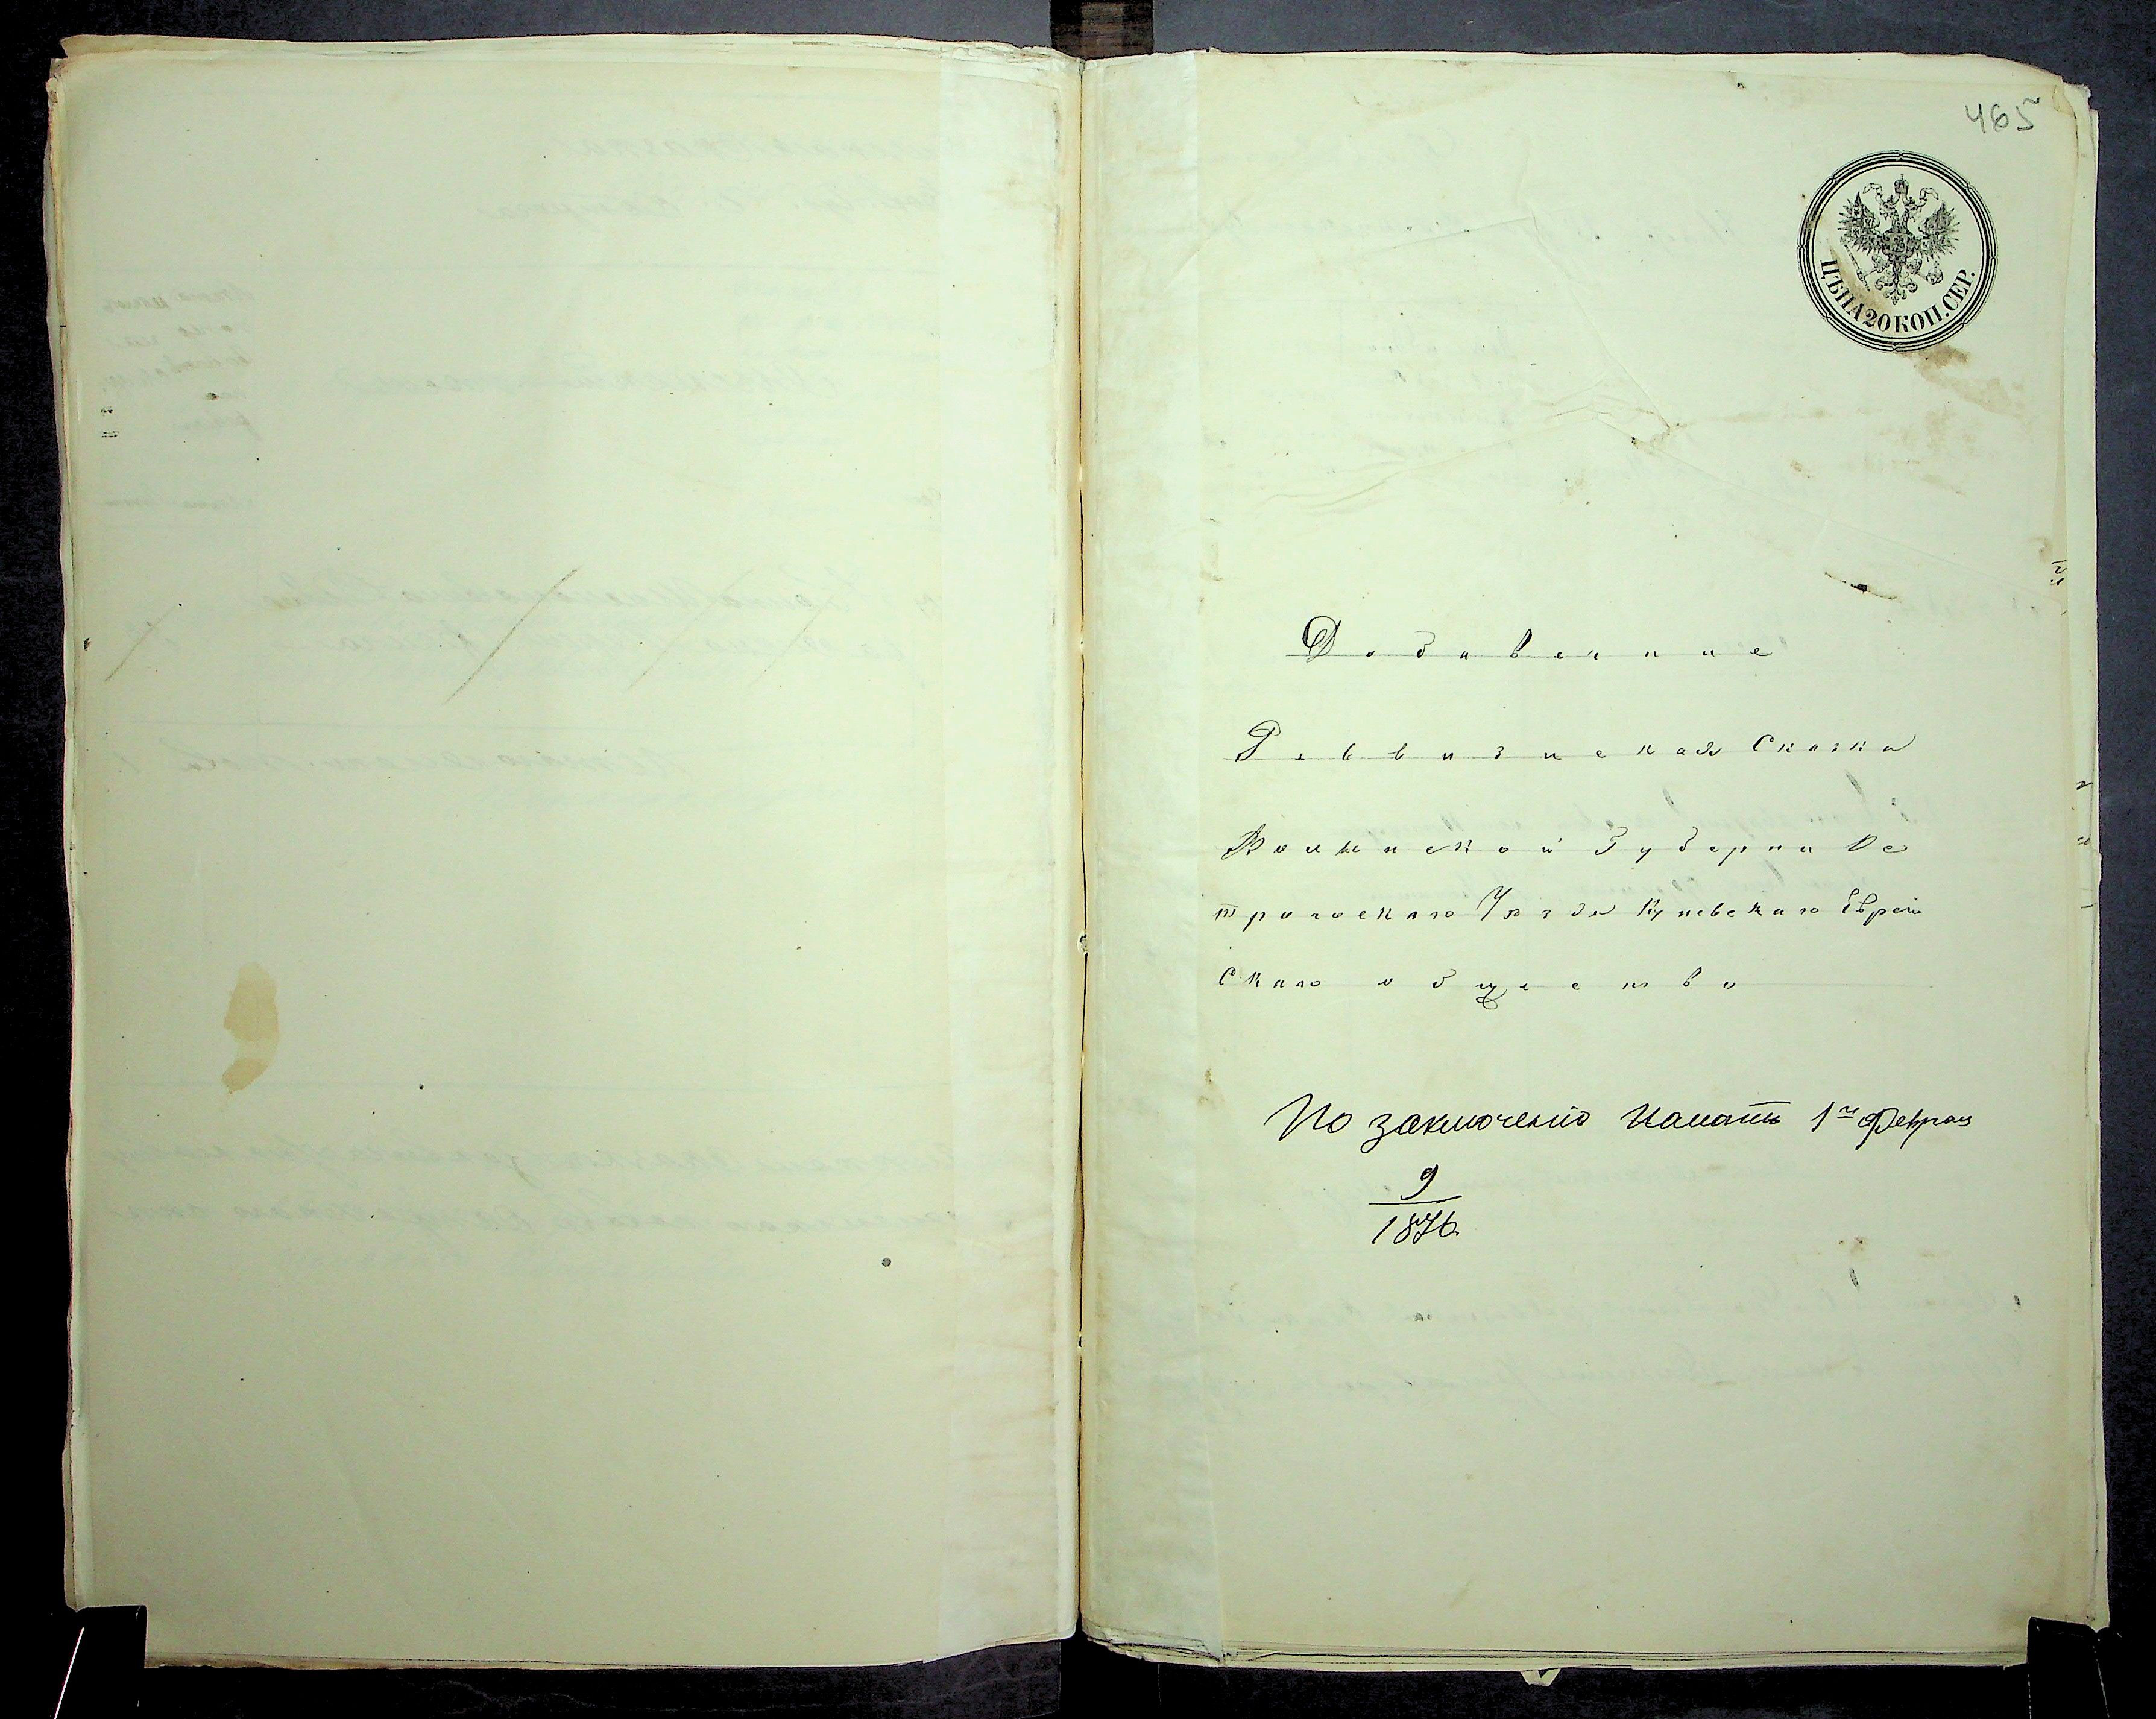 465
ЦѢНА 20 КОП. СЕР.
Добавенние
Реввизиская Сказка
Волынской Губерни Ос
трогскаго Уѣзда Куневскаго Еврей
Скаго общество
По заключенію Палаты 1876
9
1876